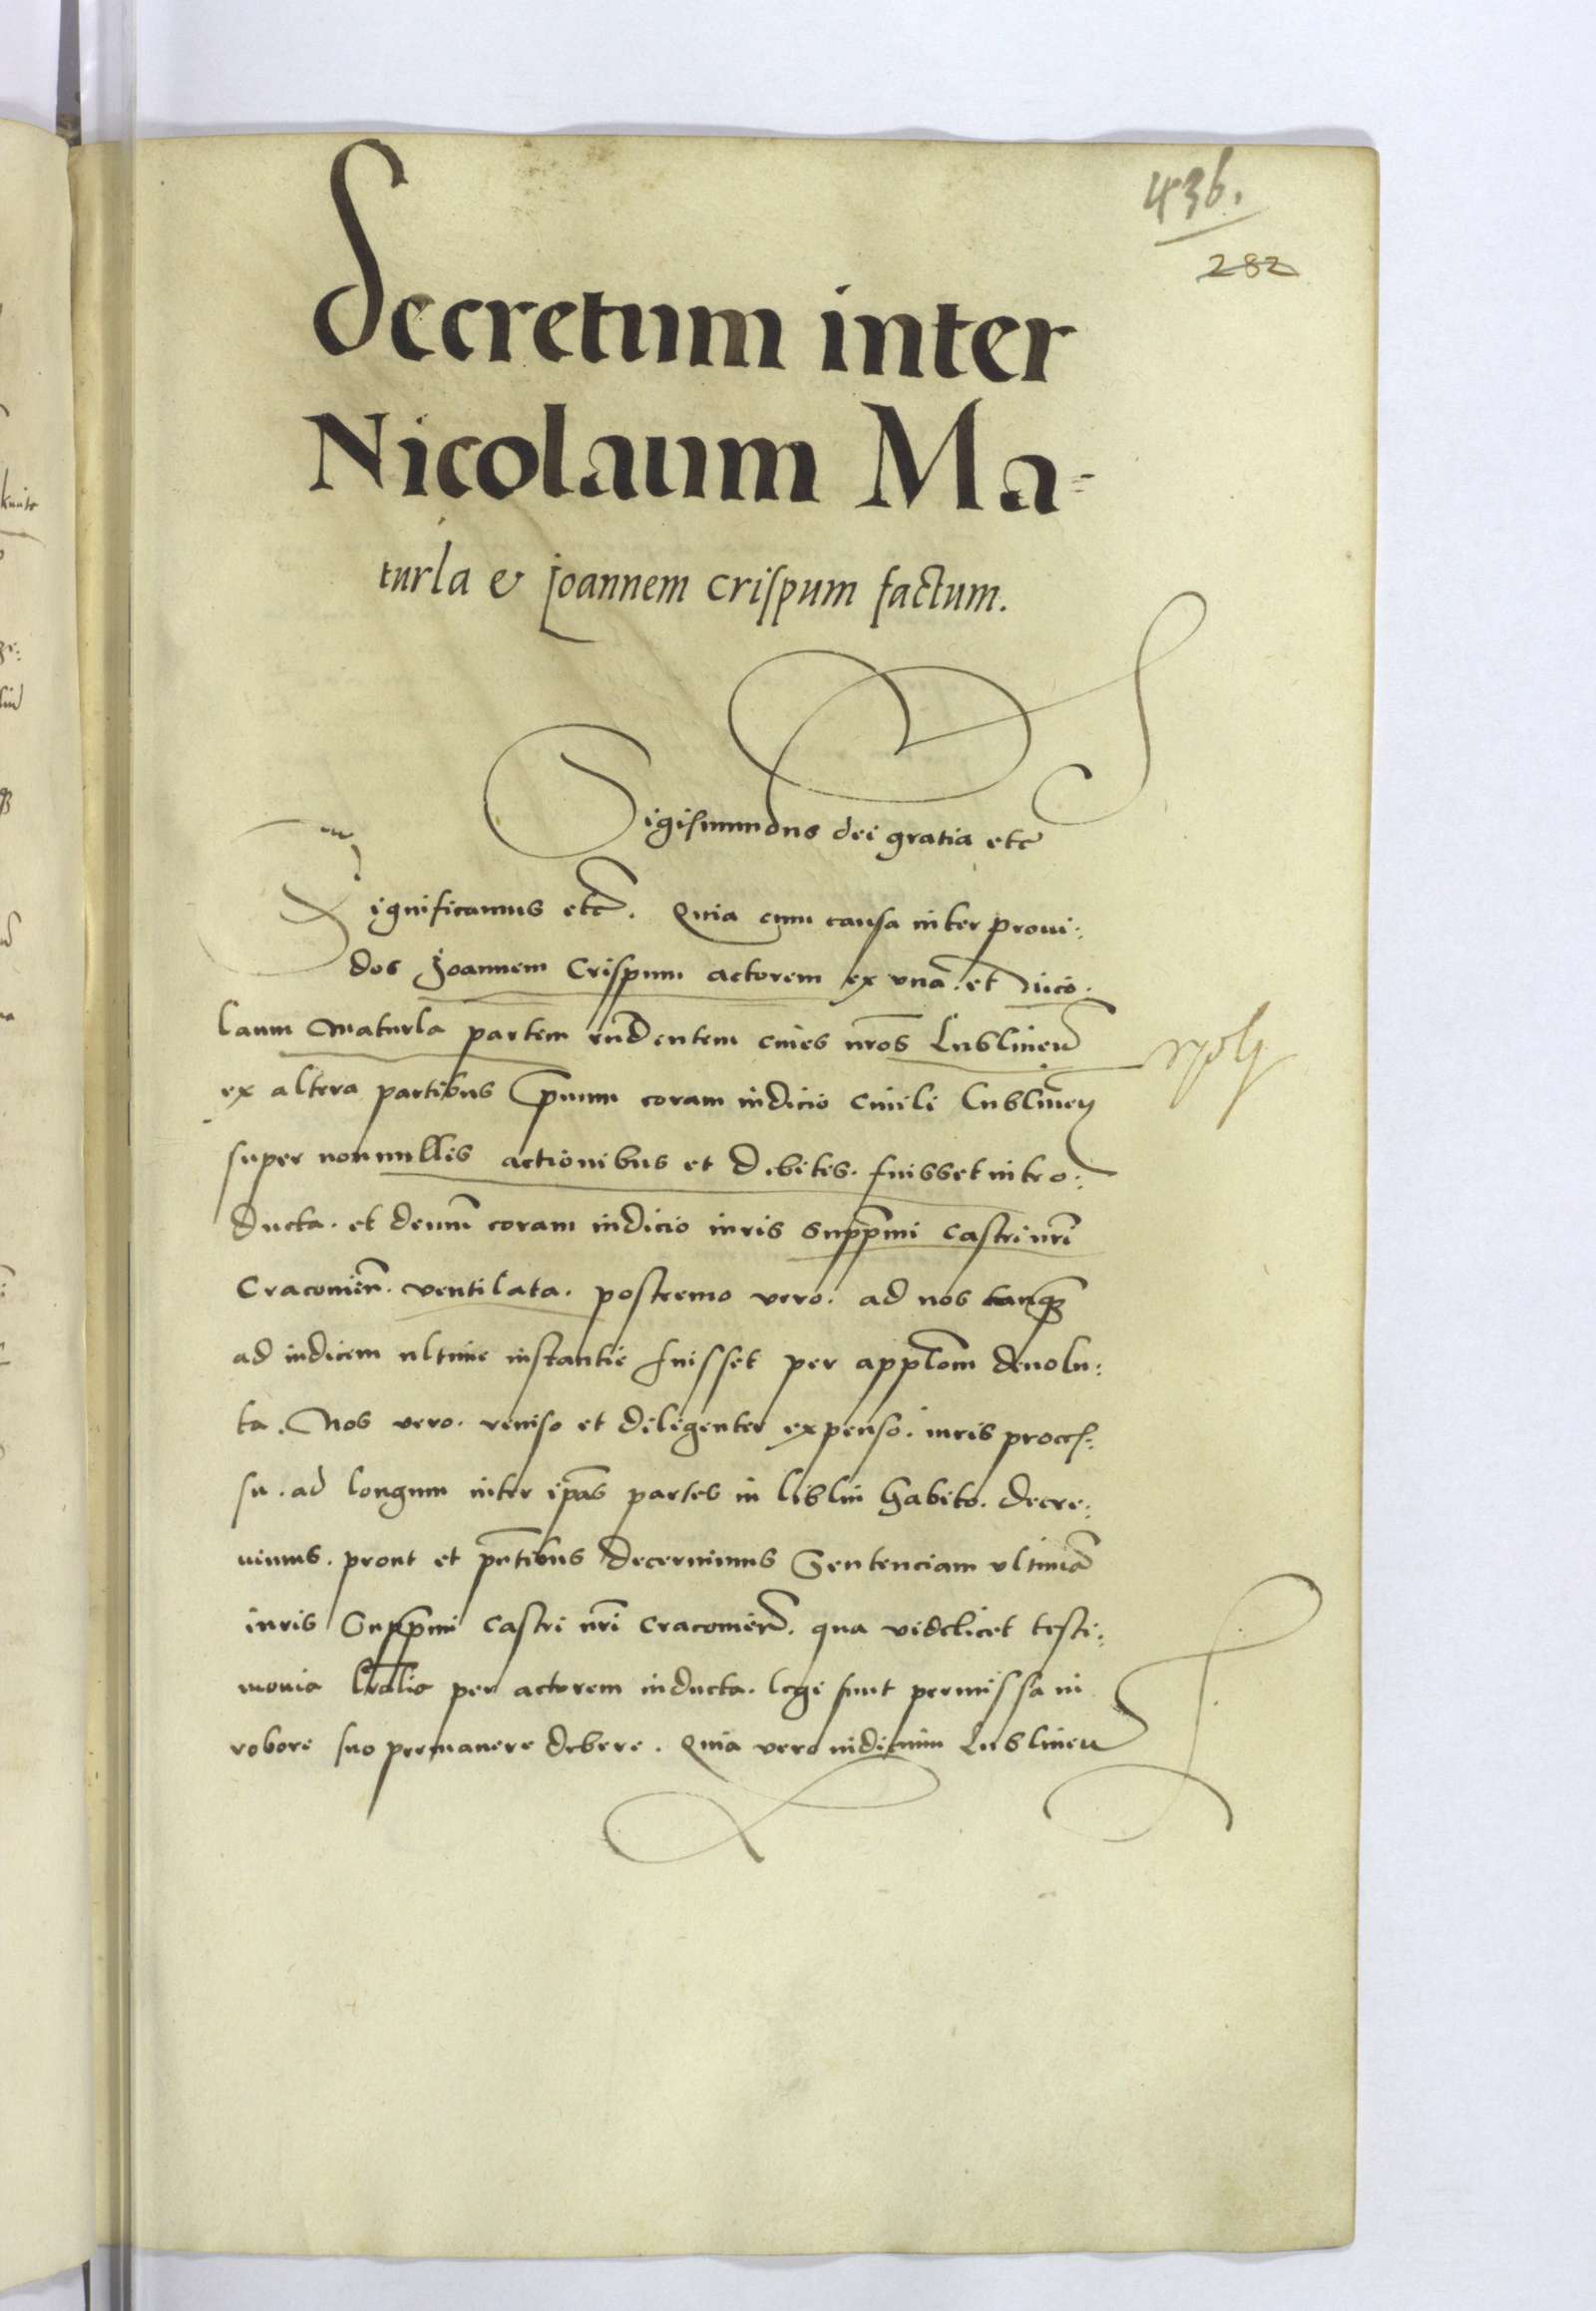 436.
282
Decretum inter
Nicolaum Ma-
turla & Joannem Crispum factum.
Sigismundus dei gratia etc
Significamus etc. Quia cum causa inter proui:
dos Joannem Crispum actorem ex vna. et Nico.
laum Maturla partem rñdentem ciues nros Lublineñ
ex altera partibus primum coram iudicio ciuili Lublineñ
super nonnullis actionibus et debitis. fuisset intro:
ducta. et demũ coram iudicio iuris suppmi castri nri
Cracouieñ. ventilata. postremo vero. ad nos tanqꝫ
ad iudicem ultime instantie fuisset per applõm deuolu:
ta. Nos vero. reuiso et diligenter expenso. iuris proces:
su. ad longum inter ipas partes in liblin habito. decre:
uimus. prout et pñtibus decernimus Sentenciam vltimã
iuris Suppmi castri nri Cracouieñ. qua videlicet testi:
monia lralia per actorem inducta. legi sunt permissa in
robore suo permanere debere. Quia vero iudicium Lublineñ